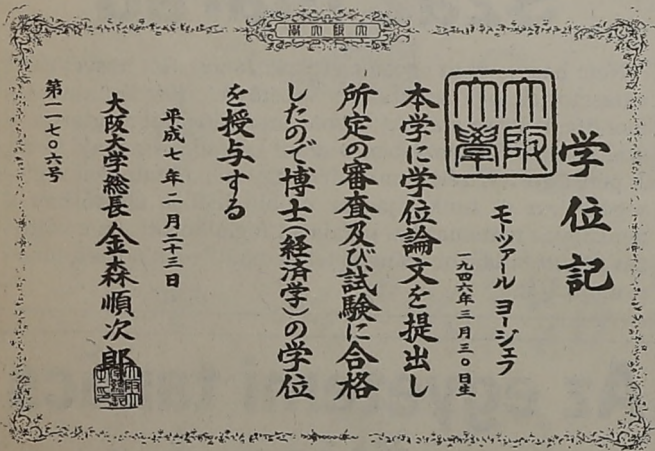 大阪大學
学位記
大阪大學
モーツァール ヨージェフ
一九四六年三月三〇日生
本学に学位論文を提出し
所定の審査及び試験に合格
したので博士(経済学)の学位
を授与する
平成七年二月二十三日
大阪大学総長 金森順次郎
第一一七〇六号